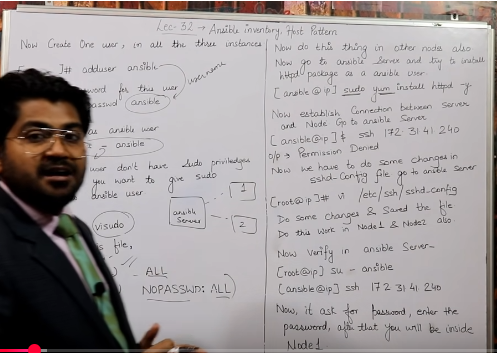 Lec-32 → Ansible inventory, Host Pattern
Now Create One user, in all the three instances
]# adduser ansible
username
word for this user
passwd ansible
as ansible user
- ansible
user don't have sudo priviledges
you want to give sudo
ansible user
visudo
file,
ALL
NOPASSWD: ALL
ansible
Server
1
2
Now do this thing in other node also
Now go to ansible Server and try to install
httpd package as a ansible user.
[ansible@ip] sudo yum install httpd -y
Now establish Connection between Server
and Node. Go to ansible Server
[ansible@ip]$ ssh 172 31 41 240
o/p → Permission Denied
Now we have to do some changes in
sshd-Config file go to ansible server
[root@ip]# vi /etc/ssh/sshd_config
Do Some changes & Saved the file
Do this work in Node1 & Node2 also
Now Verify in ansible Server-
[root@ip] su - ansible
[ansible@ip] ssh 172 31 41 240
Now, it ask for password, enter the
password, after that you will be inside
Node1.